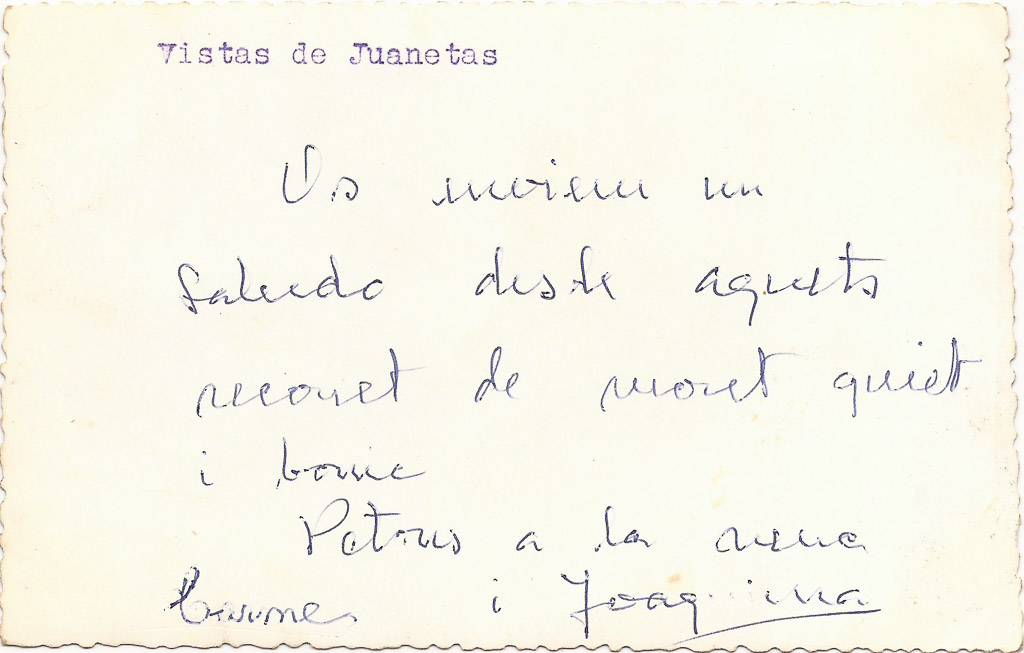 Vistas de Juanetas
Os enviem un
saludo desde aquets
reconet de monet quiet
i bonic
Petons a la nena
Carme i Joaquima